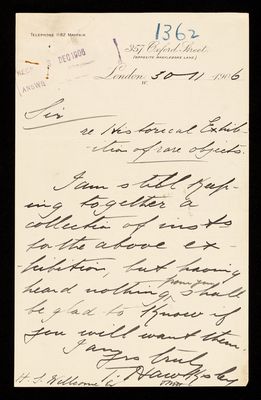 1362
TELEPHONE 1182 MAYFAIR
357 Oxford Street.
(OPPOSITE MARYLEBONE LANE)
DEC 1906
ANSWD
London, 30 11 1906
W.
Sir
re Historical Exhib-
-ition of rare objects.
I am still keep-
ing together a
collection of insts
for the above ex-
hibition, but having
heard nothing from you shall
be glad to know if
you will want them.
I am
Yrs truly
T. Hawksley
H. S. Wellcome Esq